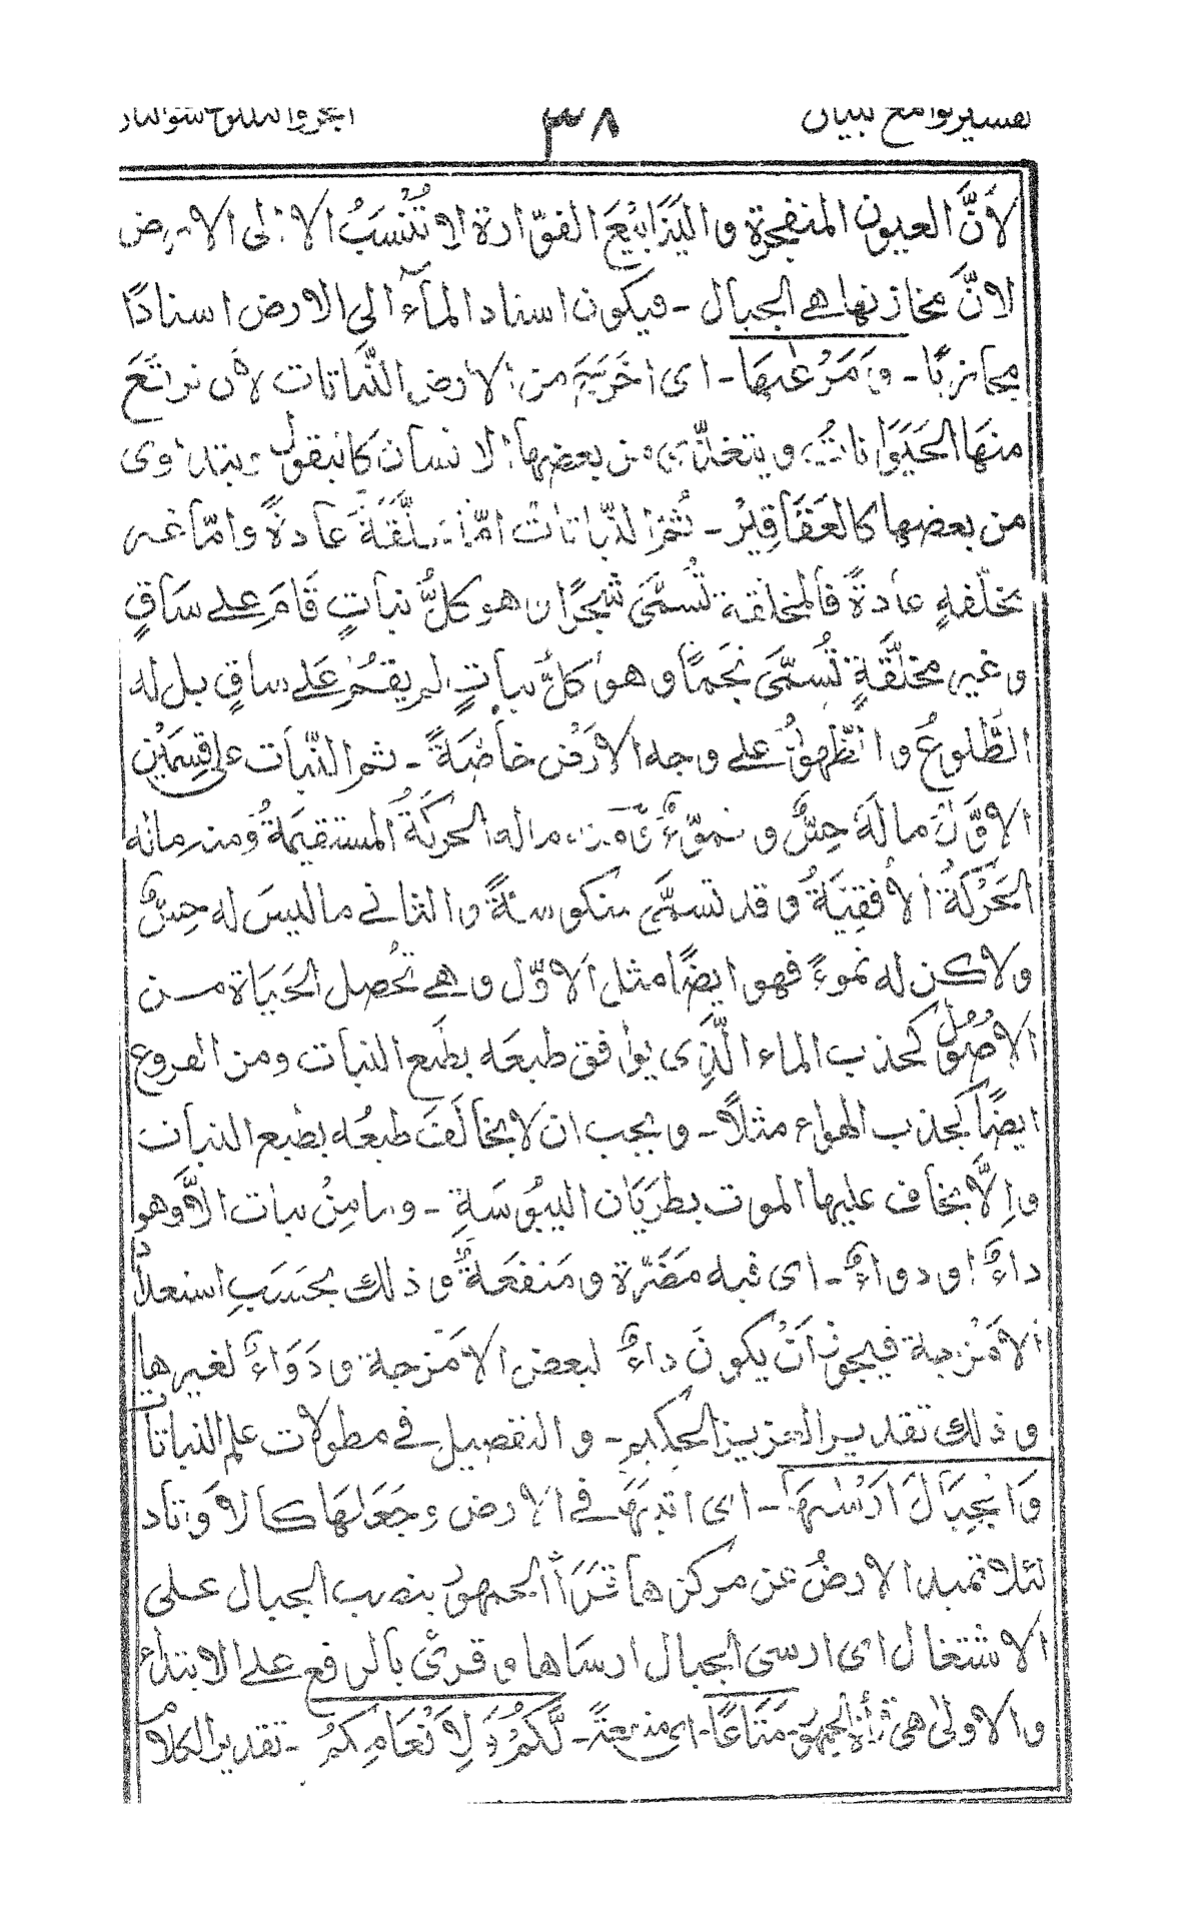 تفسير لوامع البيان ٣٨ الجزء الثلاثون
لأَنَّ العيون المنفجرة واليَنَابِيْعَ الفوّارة لا تُنْسَبُ الا الى الارض
لانَّ مخازنها هى الجبال - فيكون اسناد الماۤء الى الارض اسنادًا
مجازيًّا - وَمَرْعٰىهَا - اى اخرَجَ من الارض النَّباتات لأن ترتَعَ
منهَا الحَيَوَاناتُ ويتغذّى من بعضها الانسان كالبقول ويتداوى
من بعضها كالعَقَاقِيْرُ - ثُمَّ النّباتات امّا مخلَّقَةً عادةً وامّا غير
مخلّقةٍ عادةً فالمخلقة تُسَمَّى شَجَرًا وهو كلُّ نباتٍ قَامَ على سَاقٍ
وغير مخلَّقَةٍ تُسَمَّى نَجَمًا وهو كلُّ نباتٍ لم يقُمْ عَلى ساقٍ بل له
الطُّلوعُ والظّهورُ على وجه الارْضِ خاصَّةً - ثم النّبات على قِسمَيْنِ
الاوَّلُ مالَهُ حِسٌّ ونموّءٌ ومنه ماله الحركةُ المستقيمةُ ومنه ماله
الحَرْكَةُ الأُفقِيَّةُ وقد تسمَّى منكوسةً والثانى ماليسَ له حِسٌّ
ولاكن له نموءً فهو ايضًا مثل الاوّل وهى تُحْصل الحَيَاة من
الاصُولُ كجذب الماء الَّذِى يوافق طبعه بطَبع النبات ومن الفروع
ايضًا كجذب الهواء مثلاً - ويجب ان لا يخالَفَ طبعُه بطبع النبات
واِلاَّ يخاف عليها الموت بطَرَيَان اليَبُوْسَةِ - وما مِنْ نبات الاَّ وهو
داءٌ او دواءٌ - اى فيه مَضَرّة ومَنفَعَةٌ وذلك بحَسَبِ استعداد
الامْزجة فيجوز اَنْ يكونَ داءٌ لبعض الامْزجة ودَوَاءٌ لغيرها
وذلك تقدير العزيز الحكيم - والتفصيل فى مطولات علم النباتات
وَالجِبَالَ اَرْسٰىهَا - اى اثبتهَا فى الارض وجَعَلهَا كالاَوتاد
لئلا تميد الارضُ عن مركزها قَرَأَ الجمهور بنصب الجبال على
الاشتغال اى ارسى الجبال ارسَاها وقرئ بالرفع على الابتداء
والاولى هى قرأة الجمهور - مَتَاعًا - اى منفعةً - لَّكُمْ وَلِاَنْعَامِكُمْ - تقدير الكلام